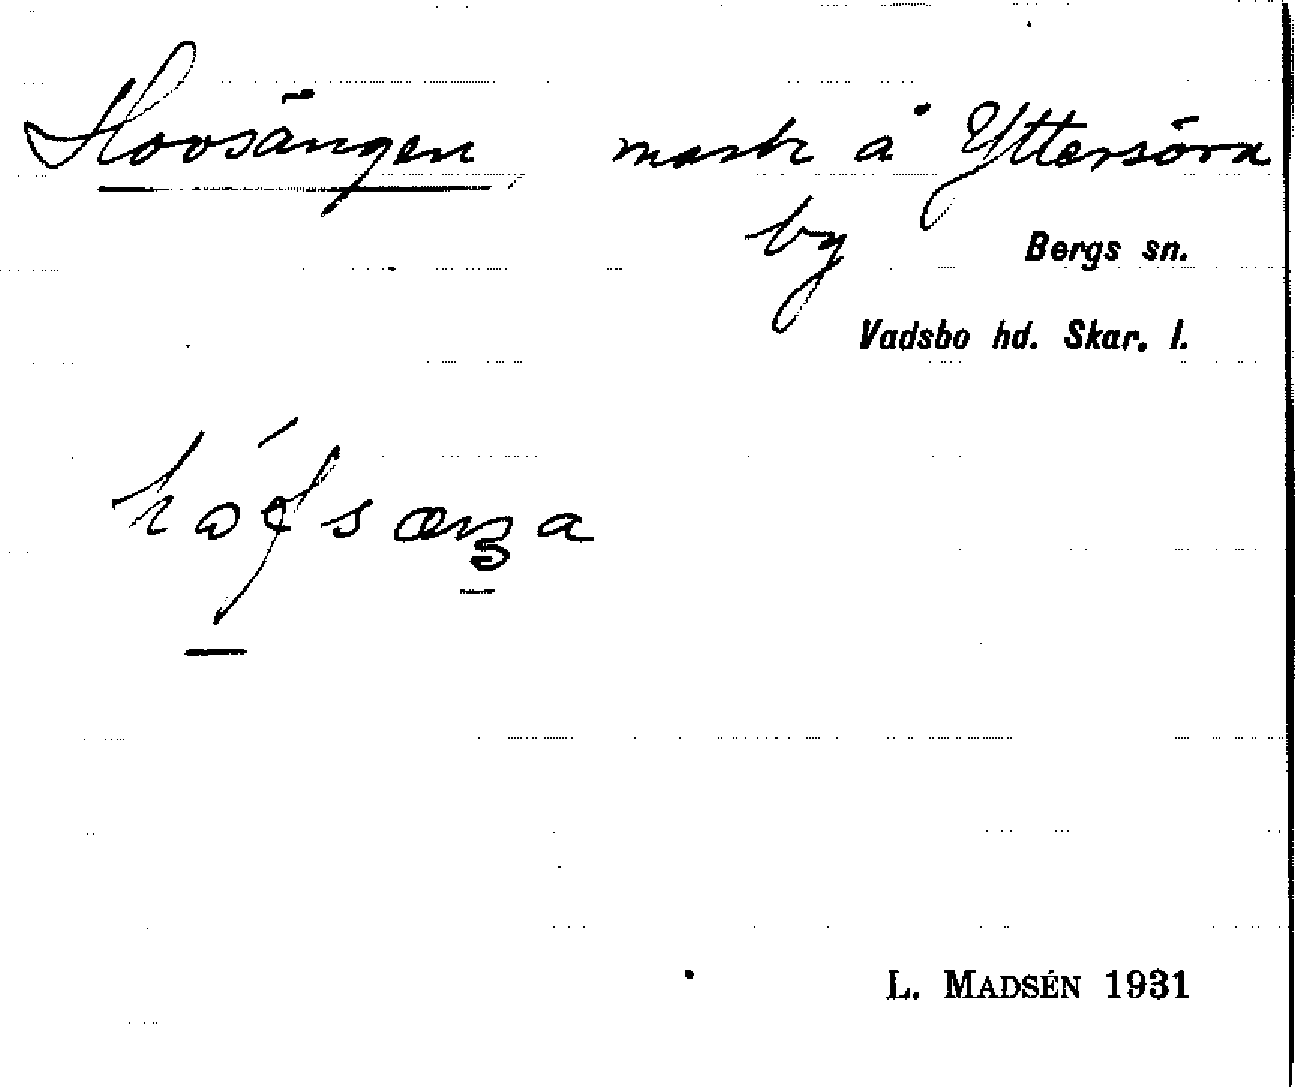 Hovsängen mark å Yttersöra
by
Bergs sn.
Vadsbo hd. Skar. l.
L. MADSÉN 1931